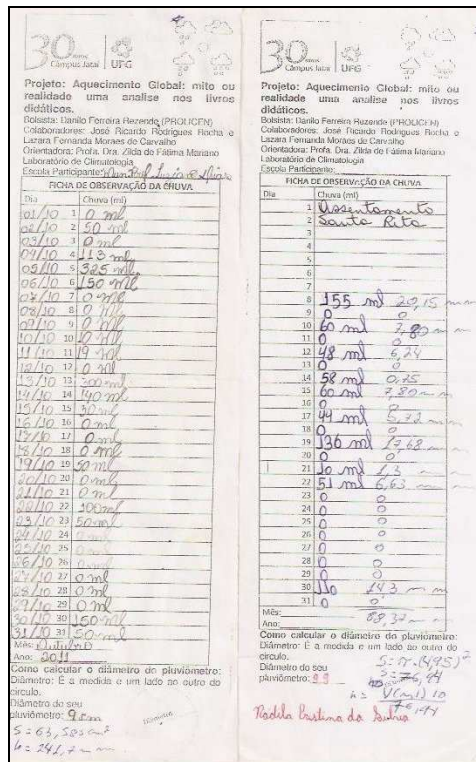 30 anos
Câmpus Jataí UFG
Projeto: Aquecimento Global: mito ou
realidade uma analise nos livros
didáticos.
Bolsista: Danilo Ferreira Rezende (PROLICEN)
Colaboradores: José Ricardo Rodrigues Rocha e
Lazara Fernanda Moraes de Carvalho
Orientadora: Profa. Dra. Zilda de Fátima Mariano
Laboratório de Climatologia
Escola Participante:
FICHA DE OBSERVAÇÃO DA CHUVA
Dia Chuva (ml)
01/10 1 0 ml
02/10 2 50 ml
03/10 3 0 ml
04/10 4 113 ml
05/10 5 325 ml
06/10 6 150 ml
07/10 7 0 ml
08/10 8 0 ml
09/10 9 0 ml
10/10 10 10 ml
11/10 11 19 ml
12/10 12 0 ml
13/10 13 300 ml
14/10 14 140 ml
15/10 15 30 ml
16/10 16 0 ml
17/10 17 0 ml
18/10 18 0 ml
19/10 19 50 ml
20/10 20 0 ml
21/10 21 0 ml
22/10 22 100 ml
23/10 23 50 ml
24/10 24 0 ml
25/10 25 0 ml
26/10 26 0 ml
27/10 27 0 ml
28/10 28 0 ml
29/10 29 0 ml
30/10 30 150 ml
31/10 31 50 ml
Mês: Outubro
Ano: 2011
Como calcular o diâmetro do pluviômetro:
Diâmetro: É a medida e um lado ao outro do
circulo.
Diâmetro do seu
pluviômetro: 9 cm
S = 63,585 cm²
h = 241,7 mm
30 anos
Câmpus Jataí UFG
Projeto: Aquecimento Global: mito ou
realidade uma analise nos livros
didáticos.
Bolsista: Danilo Ferreira Rezende (PROLICEN)
Colaboradores: José Ricardo Rodrigues Rocha e
Lazara Fernanda Moraes de Carvalho
Orientadora: Profa. Dra. Zilda de Fátima Mariano
Laboratório de Climatologia
Escola Participante:
FICHA DE OBSERVAÇÃO DA CHUVA
Dia Chuva (ml)
1 Assentamento
2 Santa Rita
3
4
5
6
7
8 155 ml 20,15 mm
9 0 0
10 60 ml 7,80 mm
11 0 0
12 48 ml 6,24
13 0 0
14 58 ml 0,75
15 60 ml 7,80 mm
16 0 0
17 44 ml 5,72 mm
18 0 0
19 136 ml 17,68 mm
20 0 0
21 10 ml 1,3 mm
22 51 ml 6,63 mm
23 0 0
24 0 0
25 0 0
26 0 0
27 0 0
28 0 0
29 0 0
30 110 14,3 mm
31 0 0
Mês:
Ano:
Como calcular o diâmetro do pluviômetro:
Diâmetro: É a medida e um lado ao outro do
circulo.
Diâmetro do seu
pluviômetro: 9.9